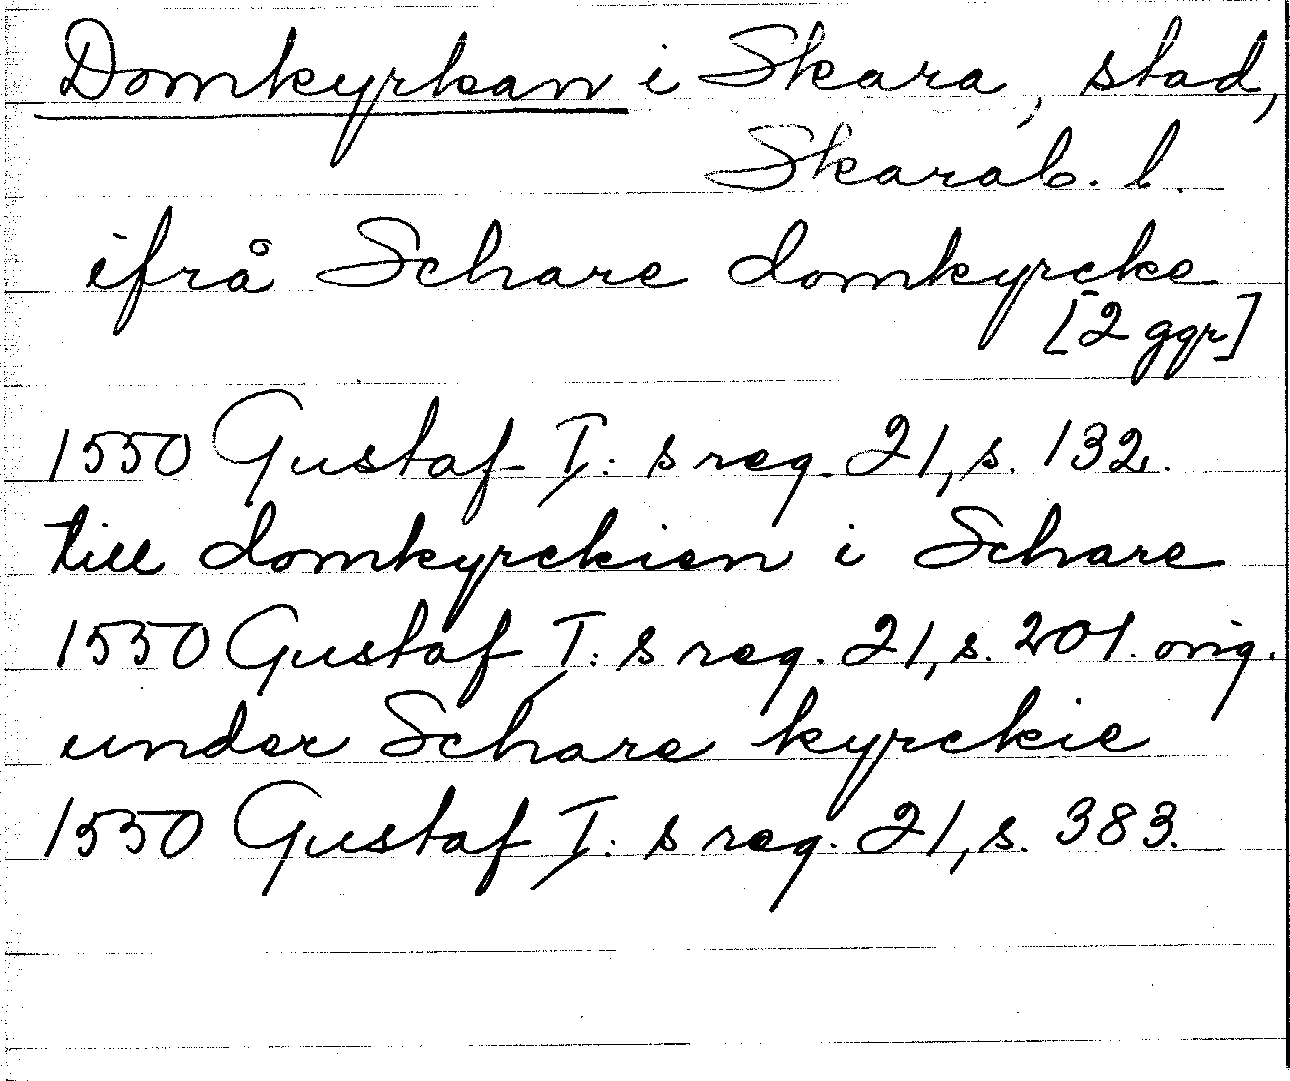 Domkyrkan i Skara, stad,
Skarab. l.
ifrå Schare domkyrcke
[2 ggr]
1550 Gustaf I: s reg. 21, s. 132.
till domkyrckien i Schare
1550 Gustaf I: s reg. 21, s. 201. orig.
under Schare kyrckie
1550 Gustaf I: s reg. 21, s. 383.